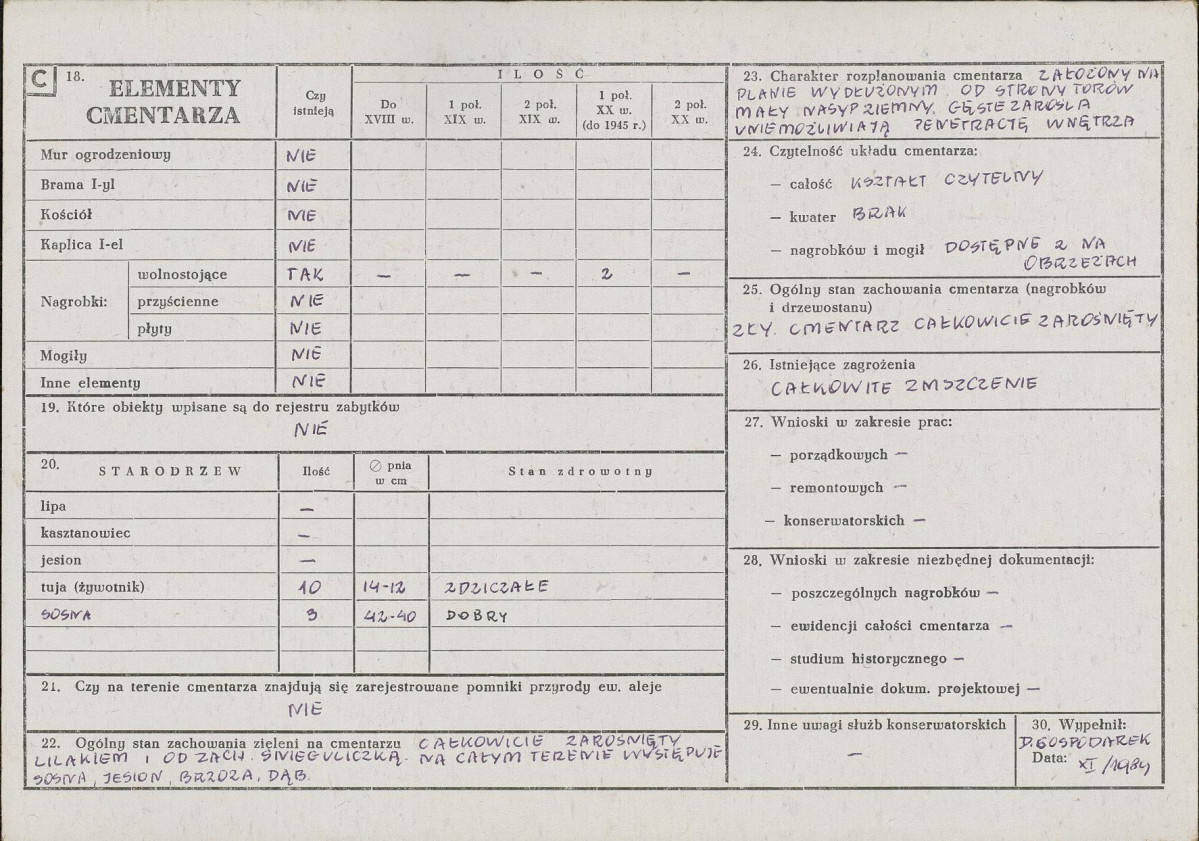 C 18. ELEMENTY CMENTARZA
Czy istnieją
ILOŚĆ
Do XVIII w.
1 poł. XIX w.
2 poł. XIX w.
1 poł. XX w. (do 1945 r.)
2 poł. XX w.
Mur ogrodzeniowy NIE
Brama I-yl NIE
Kościół NIE
Kaplica I-el NIE
Nagrobki:
wolnostojące TAK — — — 2 —
przyścienne NIE
płyty NIE
Mogiły NIE
Inne elementy NIE
19. Które obiekty wpisane są do rejestru zabytków
NIE
20. STARODRZEW Ilość ∅ pnia w cm Stan zdrowotny
lipa —
kasztanowiec —
jesion —
tuja (żywotnik) 10 14-12 ZDZICZAŁE
SOSNA 3 42-40 DOBRY
21. Czy na terenie cmentarza znajdują się zarejestrowane pomniki przyrody ew. aleje
NIE
22. Ogólny stan zachowania zieleni na cmentarzu CAŁKOWICIE ZAROŚNIĘTY
LILAKIEM I OD ZACH. ŚNIEGULICZKĄ. NA CAŁYM TERENIE WYSTĘPUJE
SOSNA, JESION, BRZOZA, DĄB.
23. Charakter rozplanowania cmentarza ZAŁOŻONY NA
PLANIE WYDŁUŻONYM. OD STRONY TORÓW
MAŁY NASYP ZIEMNY. GĘSTE ZAROŚLA
UNIEMOŻLIWIAJĄ PENETRACJĘ WNĘTRZA
24. Czytelność układu cmentarza:
— całość KSZTAŁT CZYTELNY
— kwater BRAK
— nagrobków i mogił DOSTĘPNE 2 NA
OBRZEŻACH
25. Ogólny stan zachowania cmentarza (nagrobków
i drzewostanu)
ZŁY. CMENTARZ CAŁKOWICIE ZAROŚNIĘTY
26. Istniejące zagrożenia
CAŁKOWITE ZNISZCZENIE
27. Wnioski w zakresie prac:
— porządkowych —
— remontowych —
— konserwatorskich —
28. Wnioski w zakresie niezbędnej dokumentacji:
— poszczególnych nagrobków —
— ewidencji całości cmentarza —
— studium historycznego —
— ewentualnie dokum. projektowej —
29. Inne uwagi służb konserwatorskich
—
30. Wypełnił:
D. GOSPODAREK
Data: XI/1984